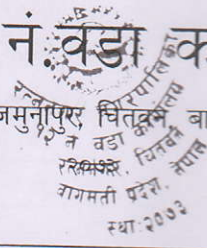 नं.वडा का
जमुनापुर, चितवन बा
रत्ननगर नगरपालिका
१२ न वडा कार्यालय
चितवन
बागमती प्रदेश, नेपाल
स्था:२०७३